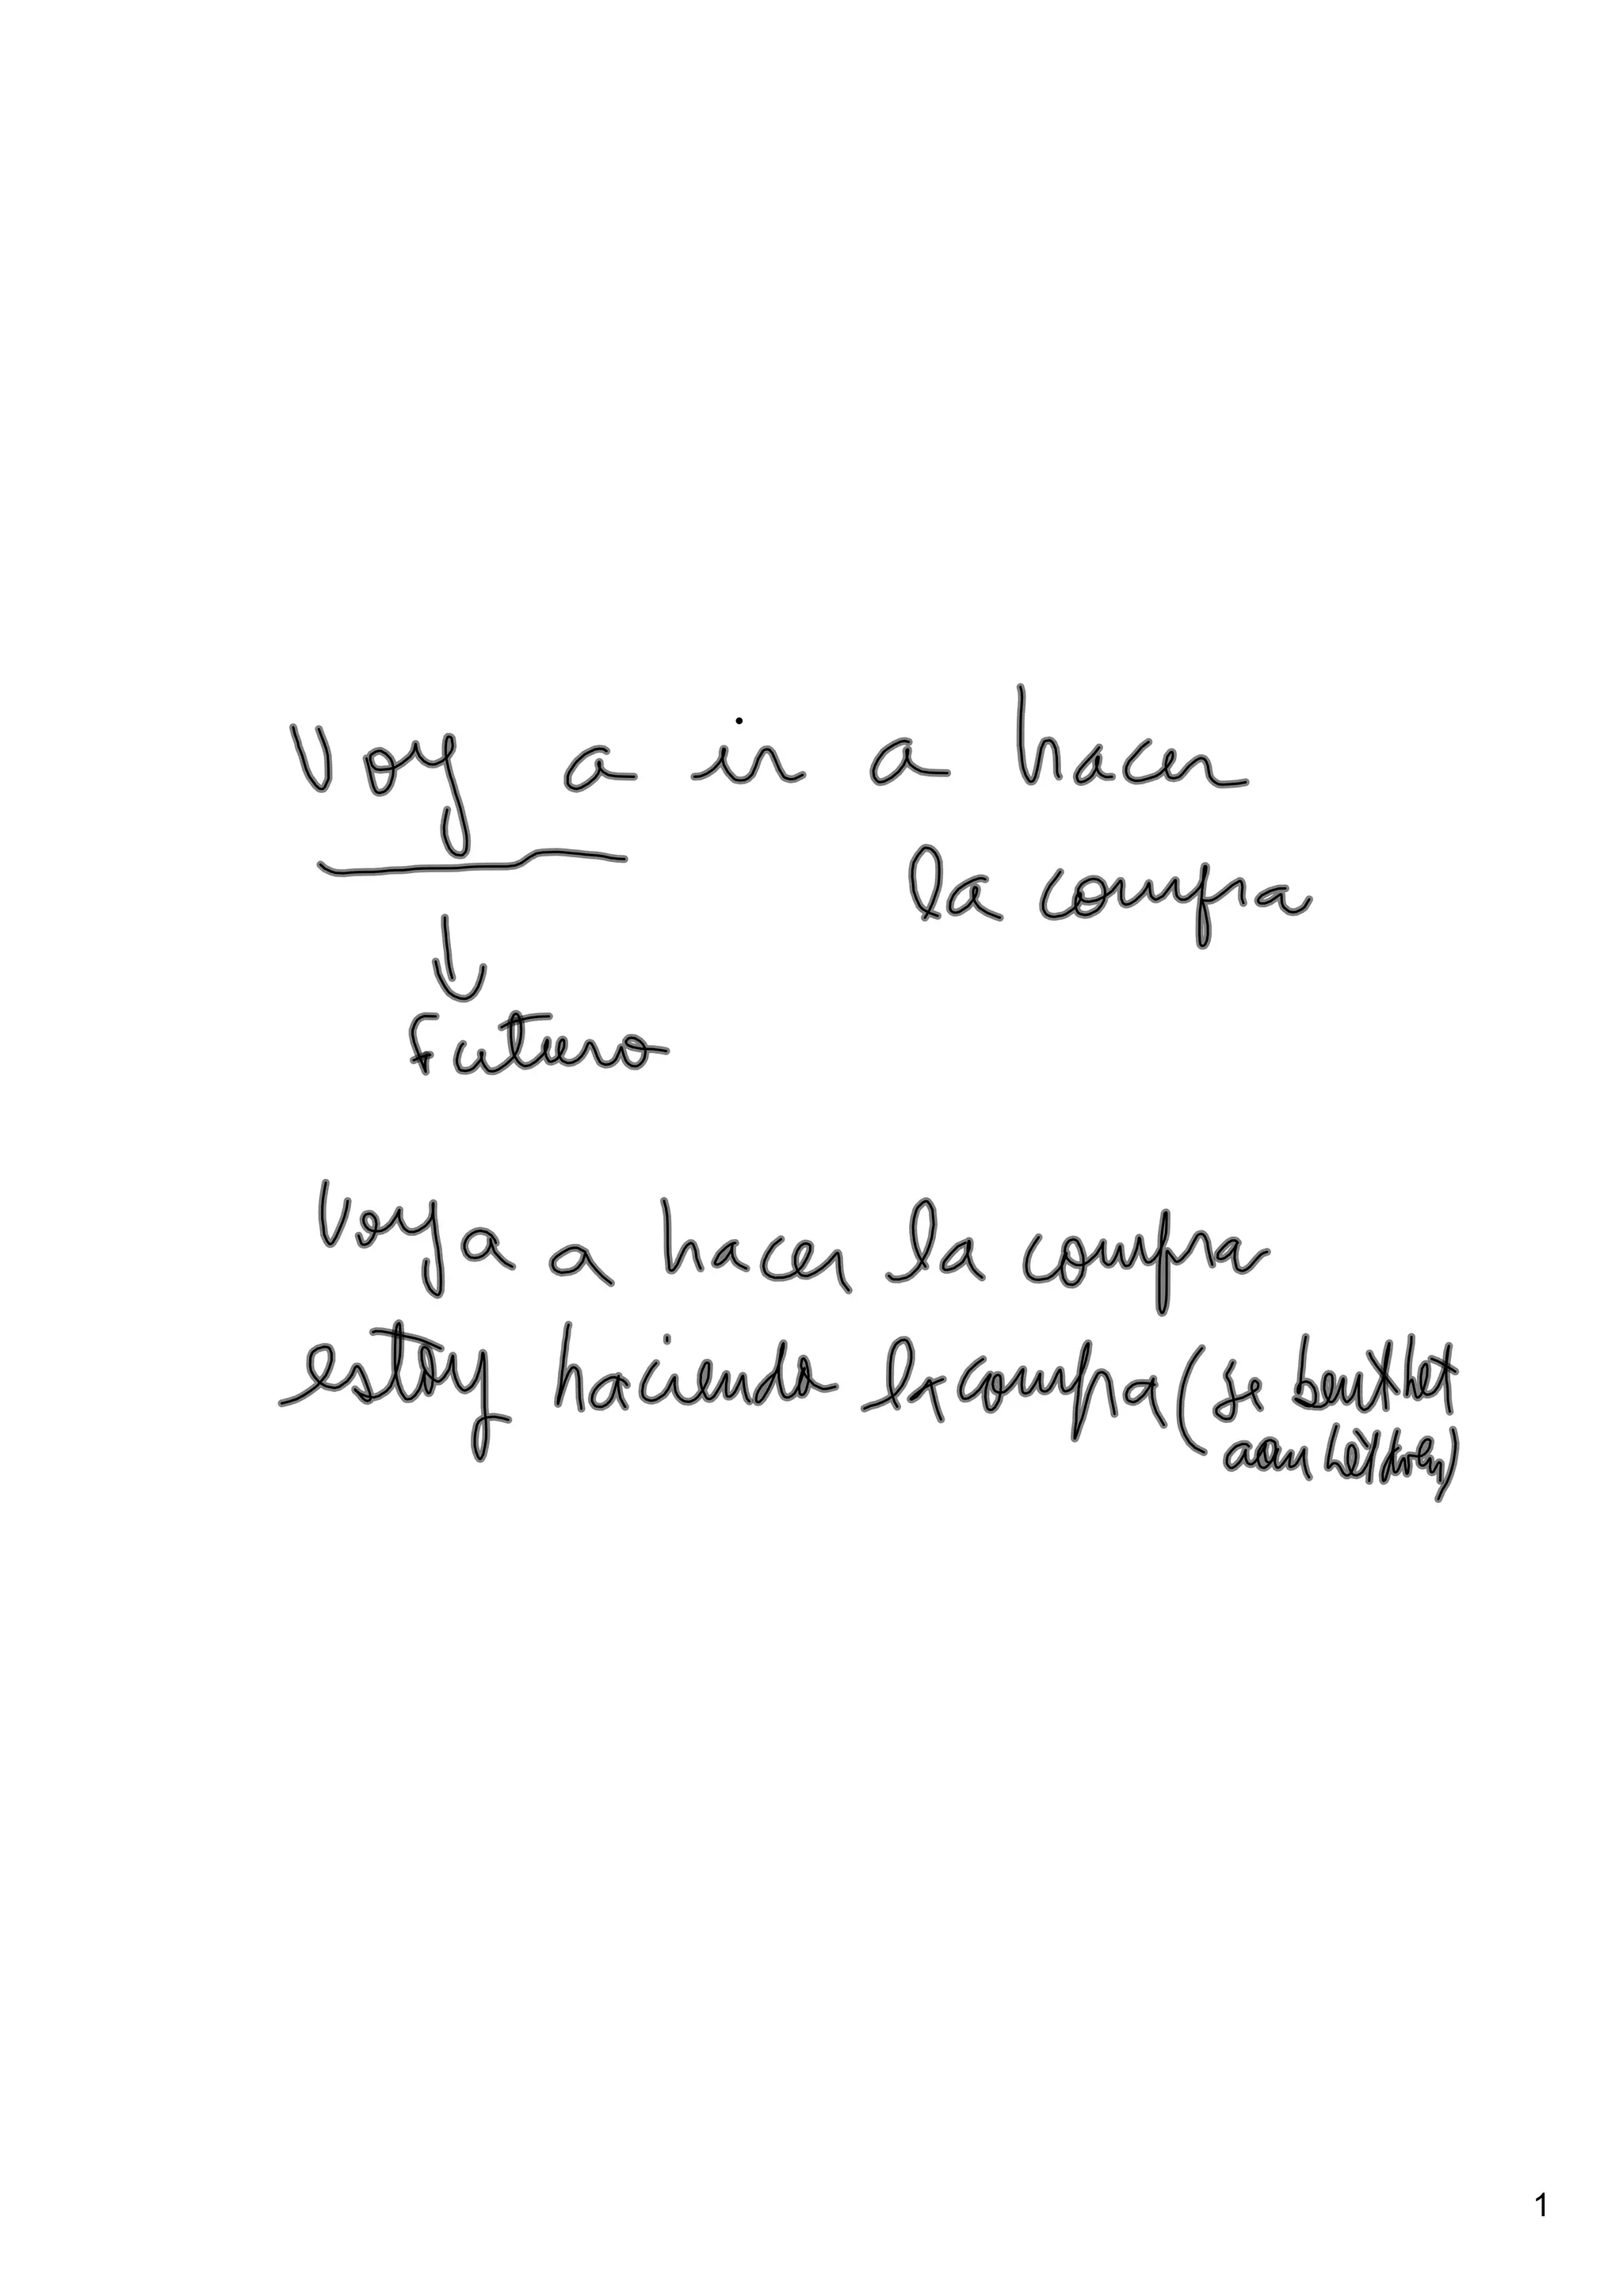 Voy a ir a hacer
la compra
Futuro
Voy a a hacer la compra
estoy haciendo la compra (je bent het
aan het doen)
1